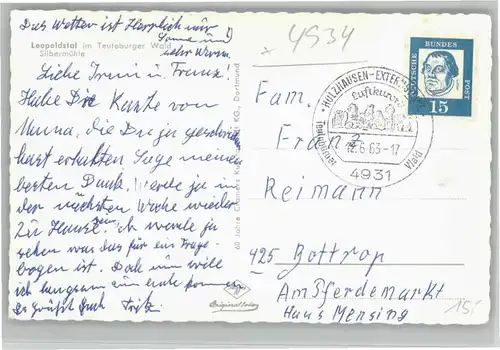 Das Wetter ist Herrlich nur
Sonne und
sehr warm
Leopoldstal im Teutoburger Wald
Silbermühle
Liebe Irmin u. Franz.
Habe Die Karte von
Mama, die Du ja geschrieben
hast erhalten Sage meinen
besten Dank. Werde ja in
der nächsten Woche wieder
zu Hause sein. Ich werde ja
sehen was das für ein Frage-
bogen ist. Dan nun will
ich langsam zum ende kommen
Es grüßt Euch Fritz
60 Jahre Cramers Kunstanstalt KG., Dortmund
Original Foto
4934
DEUTSCHE BUNDESPOST
15
HOLZHAUSEN-EXTERNSTEINE
Luftkurort
Teutoburger Wald
12.6.63-17
4931
Fam.
Franz
Reimann
425 Bottrop
Am Pferdemarkt
Haus Mensing
15,-